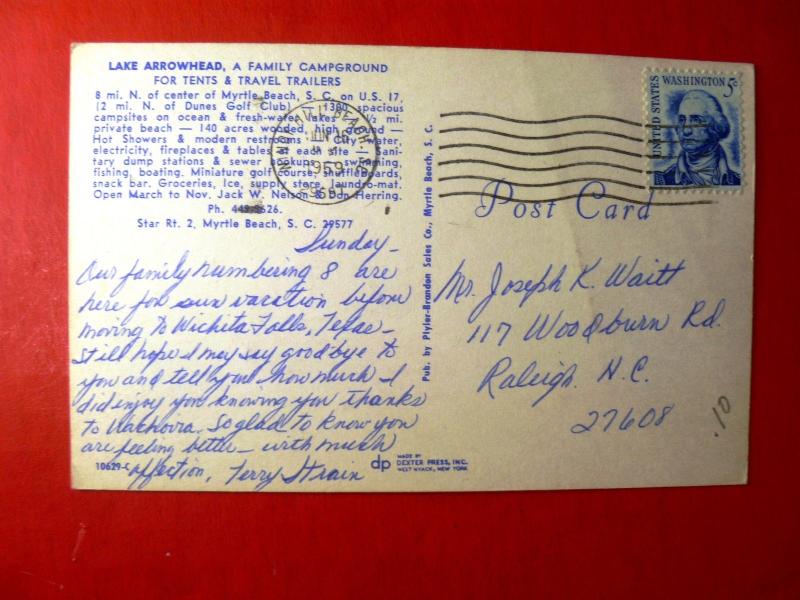 LAKE ARROWHEAD, A FAMILY CAMPGROUND
FOR TENTS & TRAVEL TRAILERS
8 mi. N. of center of Myrtle Beach, S. C. on U.S. 17,
(2 mi. N. of Dunes Golf Club) — 1300 spacious
campsites on ocean & fresh-water lakes — ½ mi.
private beach — 140 acres wooded, high ground —
Hot Showers & modern restrooms — City water,
electricity, fireplaces & tables at each site — Sani-
tary dump stations & sewer hookups — swimming,
fishing, boating. Miniature golf course, shuffleboards,
snack bar. Groceries, Ice, supply store, laundro-mat.
Open March to Nov. Jack W. Nelson & Don Herring.
Ph. 449-5626.
Star Rt. 2, Myrtle Beach, S. C. 29577
Sunday —
Our family numbering 8 are
here for our vacation before
moving to Wichita Falls, Texas —
Still hope I may say goodbye to
you and tell you how much I
did enjoy you knowing you thanks
to Wachovia. So glad to know you
are feeling better — with much
affection, Terry Strain
10629-C
Pub. by Plyler-Brandon Sales Co., Myrtle Beach, S. C.
dp
MADE BY
DEXTER PRESS, INC.
WEST NYACK, NEW YORK
JUN 16
1969
29582
UNITED STATES
WASHINGTON 5c
Post Card
Mr. Joseph K. Waitt
117 Woodburn Rd.
Raleigh, N.C.
27608
.10